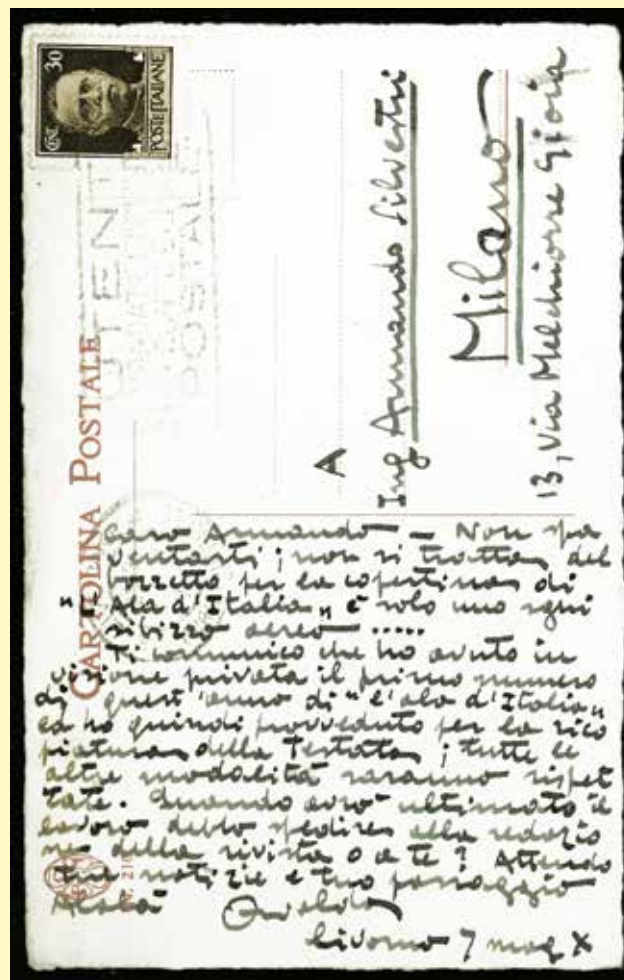 CENT 30
POSTE ITALIANE
UTENTE
POSTALE
CARTOLINA POSTALE
A
Ing Armando Silvestri
Milano
13, Via Melchiorre Gioia
caro Armando — Non spa
ventarti; non si tratta del
bozzetto per la copertina di
"L'Ala d'Italia" è solo uno sghi
ribizzo aereo .....
Ti comunico che ho avuto in
visione privata il primo numero
di quest'anno di "l'ala d'Italia"
ed ho quindi provveduto per la rico
piatura della Testata; tutte le
altre modalità saranno rispet
tate. Quando avrò ultimato il
lavoro debbo spedire alla redazio
ne della rivista o a te? Attendo
tue notizie e tuo passaggio
Alalà Osvaldo
Livorno 7 mag X